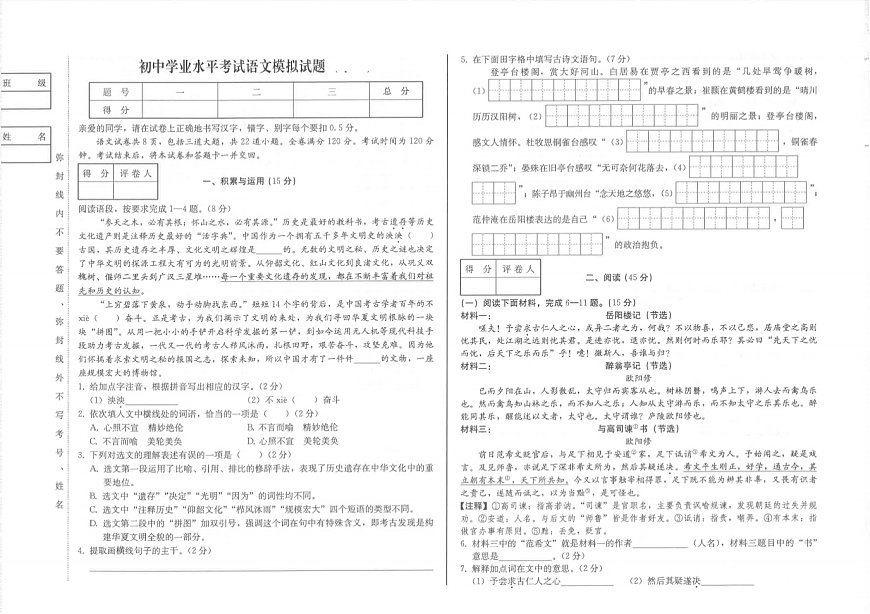 班 级
姓 名
弥封线内不要答题、弥封线外不写考号、姓名
初中学业水平考试语文模拟试题
题 号 一 二 三 总 分
得 分
亲爱的同学,请在试卷上正确地书写汉字,错字、别字每个要扣0.5分。
语文试卷共8页,包括三道大题,共22道小题。全卷满分120分。考试时间为120分
钟。考试结束后,将本试卷和答题卡一并交回。
得 分 评卷人
一、积累与运用(15分)
阅读语段,按要求完成1—4题。(8分)
“参天之木,必有其根;怀山之水,必有其源。”历史是最好的教科书,考古遗存等历史
文化遗产则是注释历史最好的“活字典”。中国作为一个拥有五千多年文明史的泱泱( )
古国,其历史遗存之丰厚、文化文明之辉煌是____的。无数的文明之秘、历史之谜也决定
了中华文明的探源工程大有可为的光明前景。从仰韶文化、红山文化到良渚文化,从巩义双
槐树、偃师二里头到广汉三星堆……每一个重要文化遗存的发现,都在不断丰富着我们对祖
先和历史的认知。
“上穷碧落下黄泉,动手动脚找东西。”短短14个字的背后,是中国考古学者百年的不
xiè( )奋斗。正是考古,为我们揭示了文明的来处,为我们寻回华夏文明根脉的一块
块“拼图”。从用一把小小的手铲开启科学发掘的第一铲,到如今运用无人机等现代科技手
段助力考古发掘,一代又一代的考古人栉风沐雨,扎根田野,艰苦奋斗,攻坚克难。因为他
们怀揣着求索文明之秘的报国之志,探索未知,所以中国才有了一件件____的文物,一座
座规模宏大的博物馆。
1. 给加点字注音,根据拼音写出相应的汉字。(2分)
(1)泱泱____ (2)不 xiè( )奋斗
2. 依次填入文中横线处的词语,恰当的一项是( )(2分)
A. 心照不宣 精妙绝伦 B. 不言而喻 精妙绝伦
C. 不言而喻 美轮美奂 D. 心照不宣 美轮美奂
3. 下列对选文的理解表述有误的一项是( )(2分)
A. 选文第一段运用了比喻、引用、排比的修辞手法,表现了历史遗存在中华文化中的重
要地位。
B. 选文中“遗存”“决定”“光明”“因为”的词性均不同。
C. 选文中“注释历史”“仰韶文化”“栉风沐雨”“规模宏大”四个短语的类型不同。
D. 选文第二段中的“拼图”加双引号,强调这个词在句中有特殊含义,即考古发现是构
建华夏文明全貌的一部分。
4. 提取画横线句子的主干。(2分)
5. 在下面田字格中填写古诗文语句。(7分)
登亭台楼阁,赏大好河山。白居易在贾亭之西看到的是“几处早莺争暖树,
(1)”的早春之景;崔颢在黄鹤楼看到的是“晴川
历历汉阳树,(2)”的明丽之景;登亭台楼阁,
感文人情怀。杜牧思铜雀台感叹“(3),铜雀春
深锁二乔”;晏殊在旧亭台感叹“无可奈何花落去,(4)
”;陈子昂于幽州台“念天地之悠悠,(5)”;
范仲淹在岳阳楼表达的是自己“(6),
”的政治抱负。
得 分 评卷人
二、阅读(45分)
(一)阅读下面材料,完成6—11题。(15分)
材料一: 岳阳楼记(节选)
嗟夫!予尝求古仁人之心,或异二者之为,何哉?不以物喜,不以己悲,居庙堂之高则
忧其民,处江湖之远则忧其君。是进亦忧,退亦忧。然则何时而乐耶?其必曰“先天下之忧
而忧,后天下之乐而乐”乎!噫!微斯人,吾谁与归?
材料二: 醉翁亭记(节选)
欧阳修
已而夕阳在山,人影散乱,太守归而宾客从也。树林阴翳,鸣声上下,游人去而禽鸟乐
也。然而禽鸟知山林之乐,而不知人之乐;人知从太守游而乐,而不知太守之乐其乐也。醉
能同其乐,醒能述以文者,太守也。太守谓谁?庐陵欧阳修也。
材料三: 与高司谏①书(节选)
欧阳修
前日范希文贬官后,与足下相见于安道②家,足下诋诮③希文为人。予始闻之,疑是戏
言。及见师鲁,亦说足下深非希文所为,然后其疑遂决。希文平生刚正,好学,通古今,其
立朝有本末④,天下所共知。今又以言事触宰相得罪,足下既不能为辨其非辜,又畏有识者
之责己,遂随而诋之,以为当黜⑤,是可怪也。
【注释】①高司谏:指高若讷。“司谏”是官职名,主要负责讽喻规谏,发现朝廷的过失并规
劝。②安道:人名。与后文的“师鲁”皆是作者好友。③诋诮:指责,嘲弄。④有本末:指
做官办事有原则。⑤黜:丢免,贬官。
6. 材料三中的“范希文”就是材料一的作者____(人名),材料三题目中的“书”
意思是____。(2分)
7. 解释加点词在文中的意思。(2分)
(1)予尝求古仁人之心____ (2)然后其疑遂决____